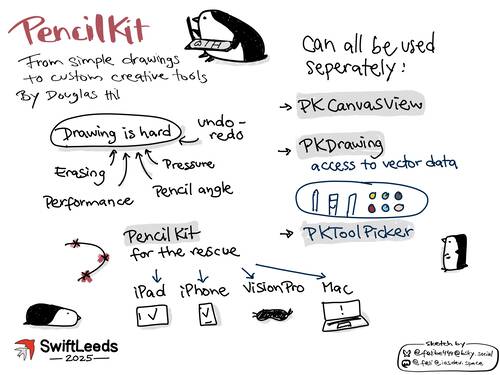 PencilKit
From simple drawings
to custom creative tools
By Douglas Hill
Drawing is hard
undo-
redo
Erasing
Performance
Pressure
Pencil angle
PencilKit
for the rescue
iPad iPhone VisionPro Mac
Can all be used
seperately:
→ PKCanvasView
→ PKDrawing
access to vector data
→ PKToolPicker
SwiftLeeds
2025
sketch by